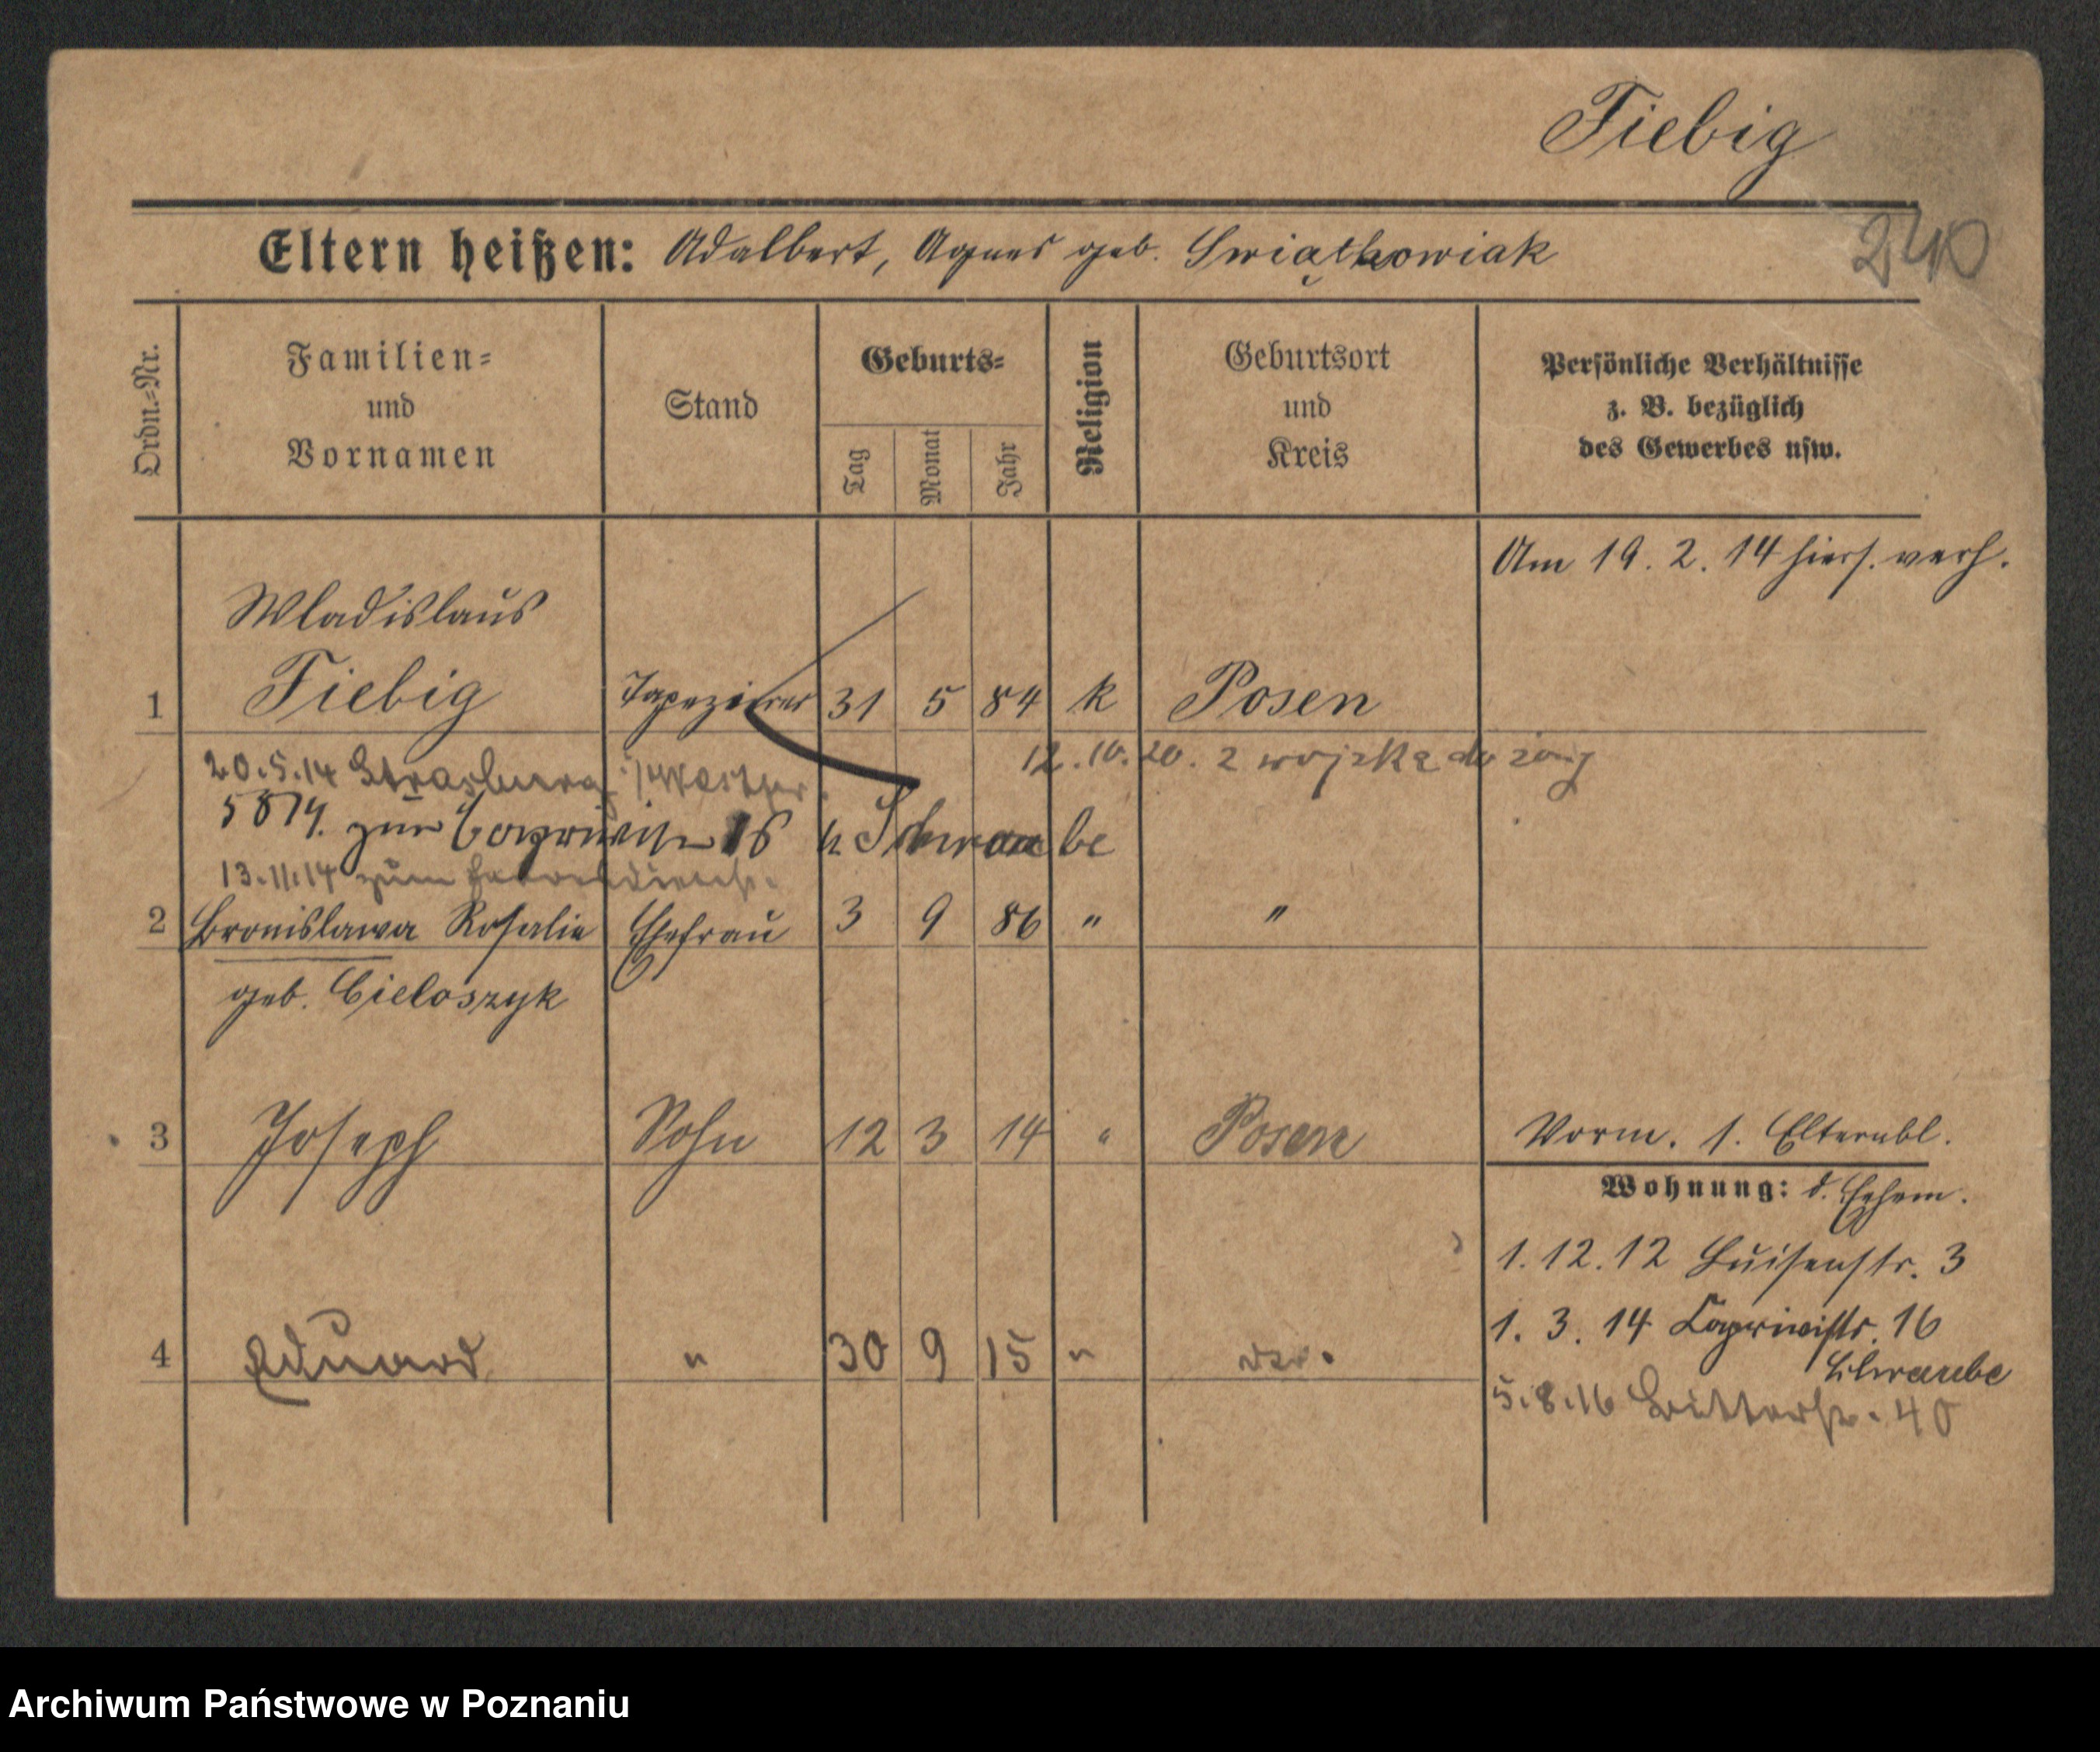 Fiebig
240
Eltern heißen: Adalbert, Agnes geb. Swiątkowiak
Ordn.-Nr.
Familien-
und
Vornamen
Stand
Geburts-
Tag
Monat
Jahr
Religion
Geburtsort
und
Kreis
Persönliche Verhältnisse
z. B. bezüglich
des Gewerbes usw.
Am 19. 2. 14 hiers. verh.
Wladislaus
1 Fiebig Tapezierer 31 5 84 k Posen
20.5.14 Strasburg i/Westpr.
12.10.20. z wojska do żony
5 8 14. zur Capriwistr 16 b. Schwabe
13.11.14 zum
2 Bronislawa Rosalie Ehefrau 3 9 86 " "
geb. Cieloszyk
3 Joseph Sohn 12 3 14 " Posen
Vorm. s. Elternbl.
Wohnung: d. Ehem.
1. 12. 12 Luisenstr. 3
1. 3. 14 Capriwistr. 16
4 Eduard " 30 9 15 "
Schwabe
5.8.16 40
Archiwum Państwowe w Poznaniu